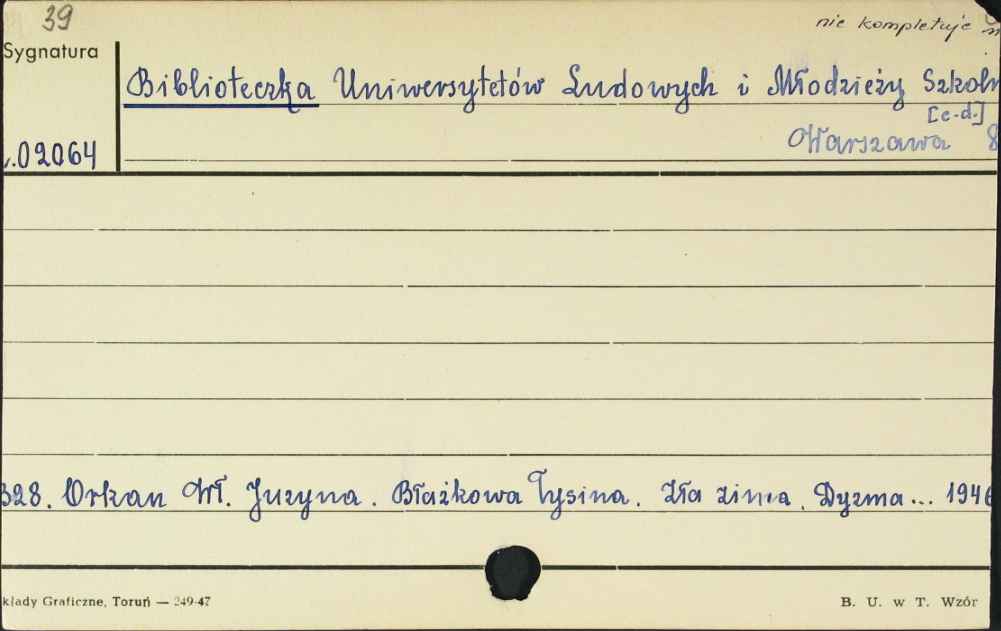 39
nie kompletuje
Sygnatura
Biblioteczka Uniwersytetów Ludowych i Młodzieży Szkoln
[c.d.]
Warszawa 8
.02064
328. Orkan Wł. Juzyna. Błażkowa Łysina. Zła zima. Dyzma... 1946
kłady Graficzne, Toruń — 249-47
B. U. w T. Wzór